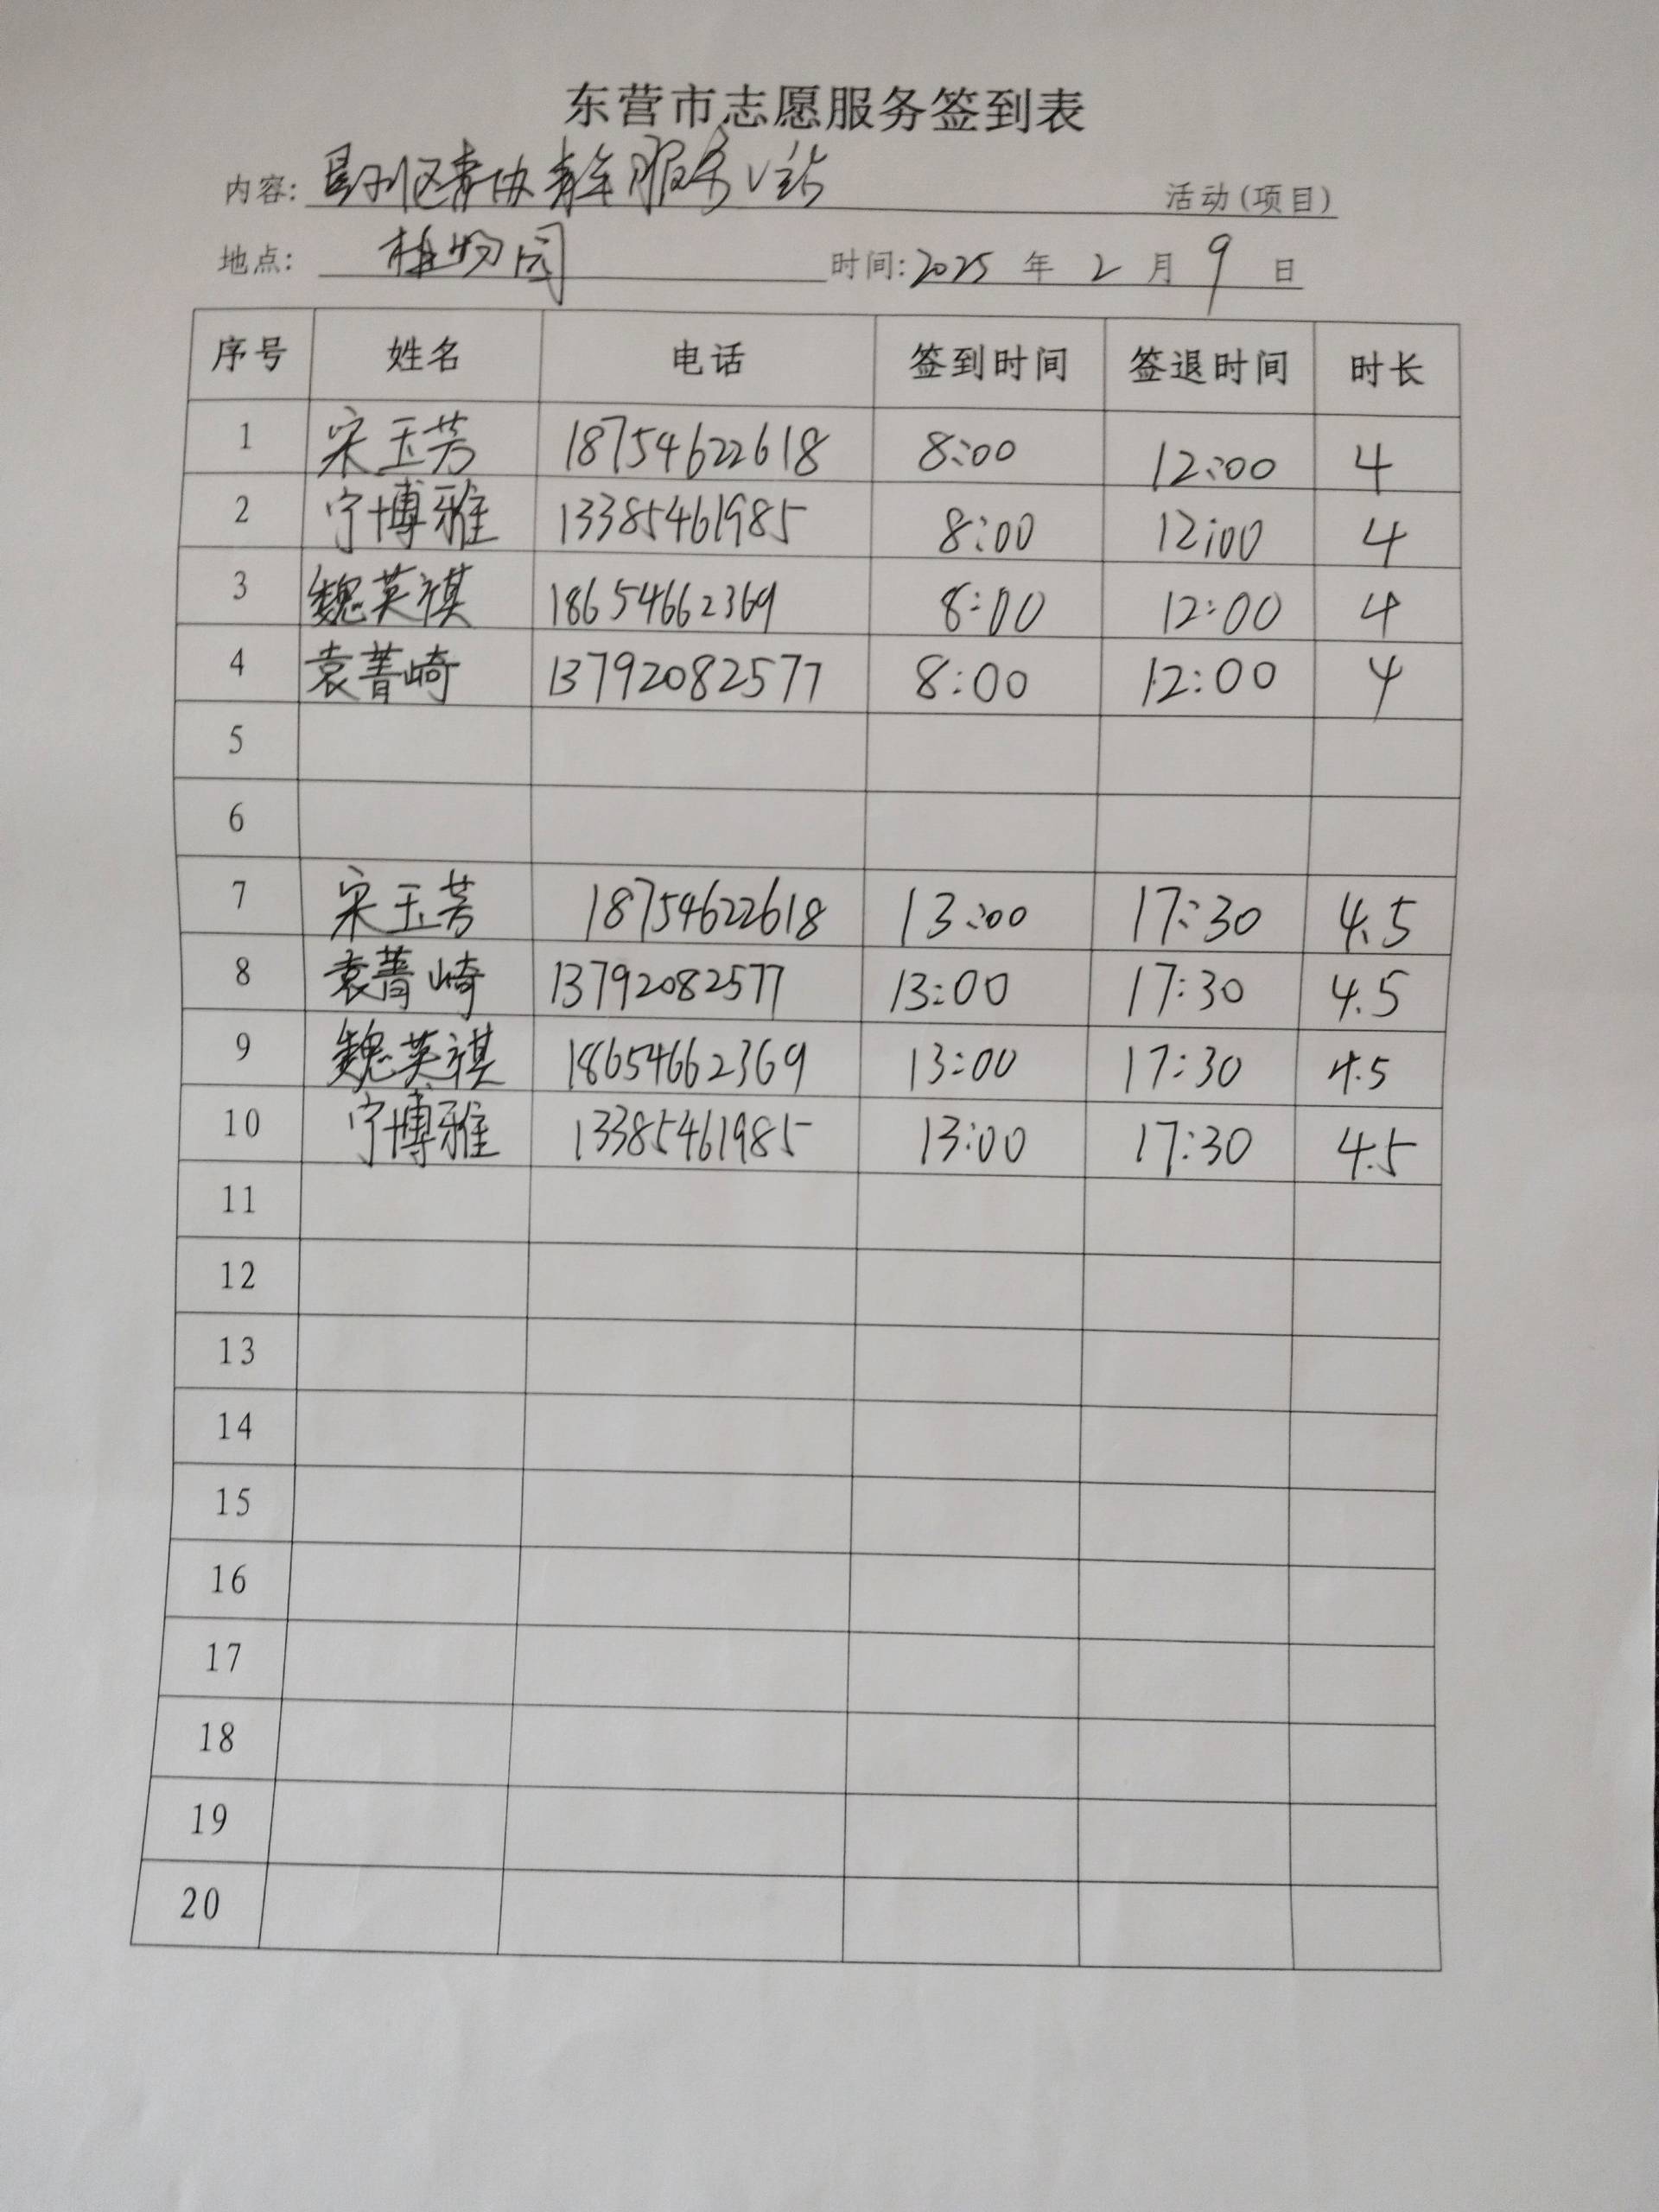 东营市志愿服务签到表
内容: 垦利区青协青年服务V站 活动(项目)
地点: 植物园 时间: 2025 年 2 月 9 日
序号 姓名 电话 签到时间 签退时间 时长
1 宋玉芳 18754622618 8:00 12:00 4
2 宁博雅 13385461985 8:00 12:00 4
3 魏英祺 18654662369 8:00 12:00 4
4 袁菁崎 13792082577 8:00 12:00 4
5
6
7 宋玉芳 18754622618 13:00 17:30 4.5
8 袁菁崎 13792082577 13:00 17:30 4.5
9 魏英祺 18654662369 13:00 17:30 4.5
10 宁博雅 13385461985 13:00 17:30 4.5
11
12
13
14
15
16
17
18
19
20